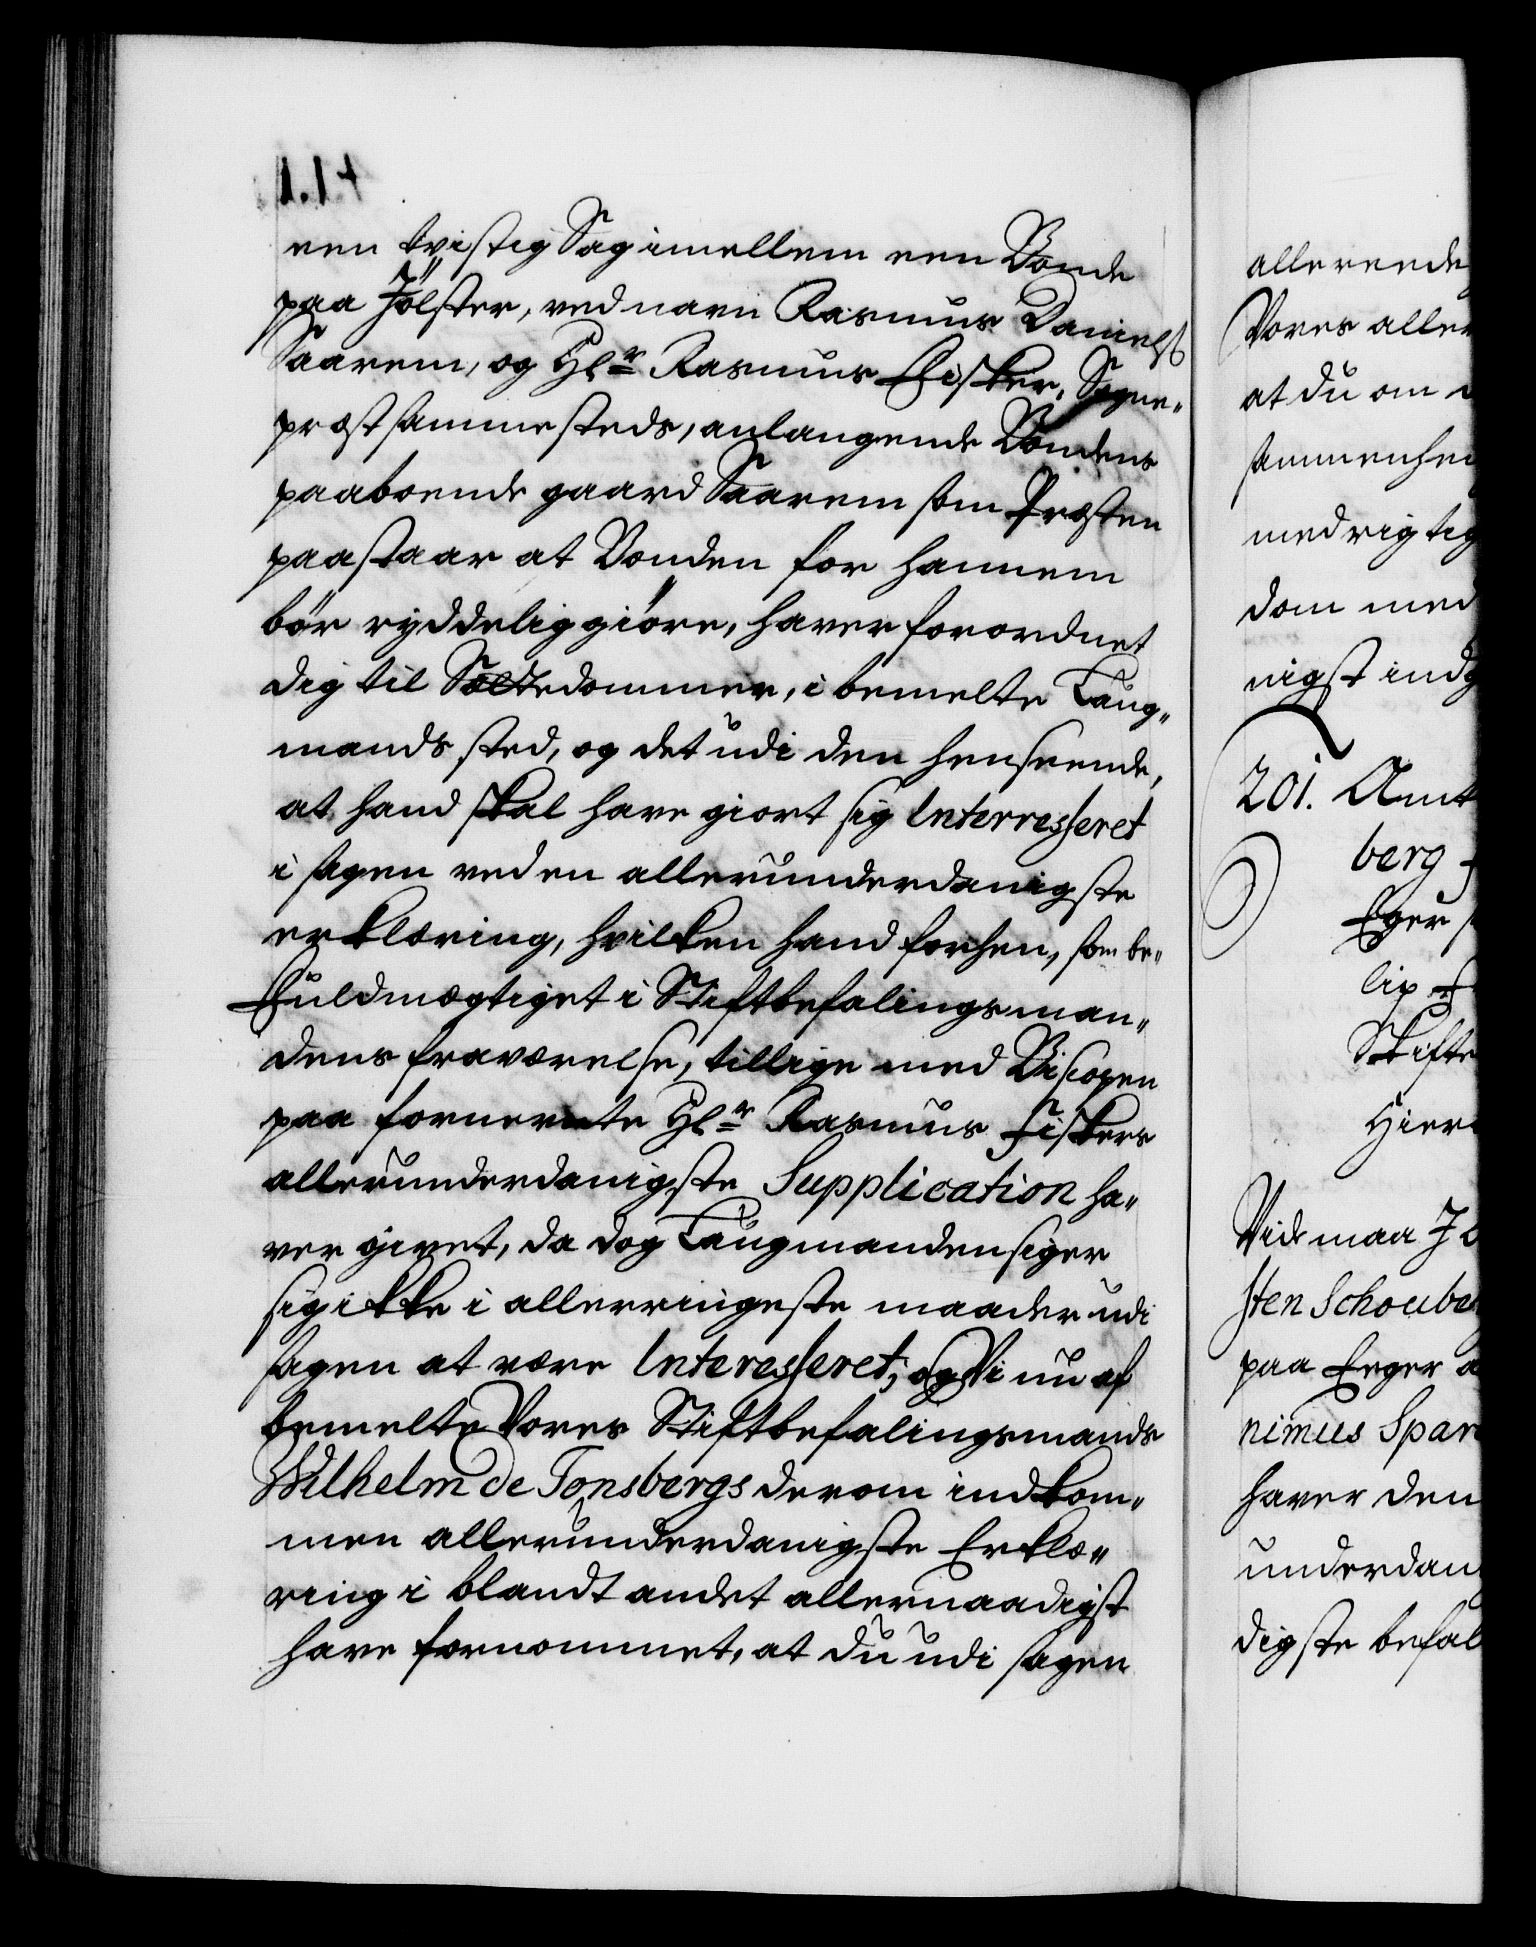 een tvistig Sag imellem een Bonde
paa Jölster, ved navn Rasmus Daniels
Saarem, og Hr. Rasmus Fisker, Sogne-
præst sammesteds, anlangende Bondens
paaboende gaard Saarem som Præsten
paastaar at Bonden for hannem
bör ryddelig giöre, haver forordnet
dig til Sættedommer, i bemelte Laug-
mands sted, og det udi den henseende,
at hand skal have giort sig Interresseret
i sagen ved en allerunderdanigste
erklæring, hvilken hand forhen, som be-
fuldmægtiget i Stiftbefalingsman-
dens fraværelse, tillige med Biscopen
paa fornevnte Hr. Rasmus Fiskers
allerunderdanigste Supplication ha-
ver givet, da dog Laugmanden siger
sig ikke i allerringeste maader udi
sagen at være Interesseret; og Vi nu af
bemelte Vores Stiftbefalingsmands
Wilhelm de Tonsbergs derom indkom-
men allerunderdanigste Erklæ-
ring i blandt andet allernaadigst
have fornommet, at du udi sagen
allereede
Vores aller
at du om
sammenhen
med rigtig
dom med
nigst indg
201. Amt
berg
Eger
lig
Stifte
Hier
Vide maa
sten Schoube
paa Eeger
nimus Spar
haver den
underdan
digste befal